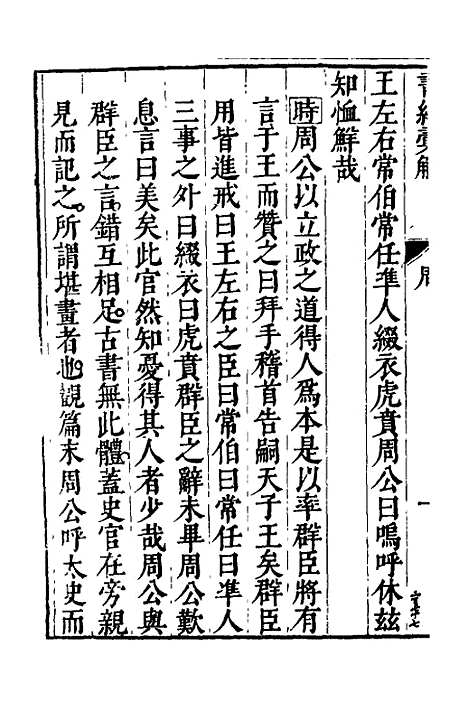 書經彙解
周
一
王左右常伯常任準人綴衣虎賁周公曰嗚呼休玆
知恤鮮哉
時周公以立政之道得人爲本是以率羣臣將有
言于王而贊之曰拜手稽首告嗣天子王矣群臣
用皆進戒曰王左右之臣曰常伯曰常任曰準人
三事之外曰綴衣曰虎賁群臣之辭未畢周公歎
息言曰美矣此官然知憂得其人者少哉周公與
群臣之言錯互相足古書無此體蓋史官在旁親
見而記之所謂堪畫者也觀篇末周公呼太史而